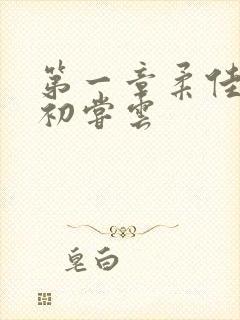 第一章柔佳
初尝云
皂白